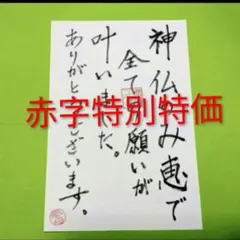 神仏のみ恵で
全ての願いが
叶いました。
ありがとうございます。
赤字特別特価